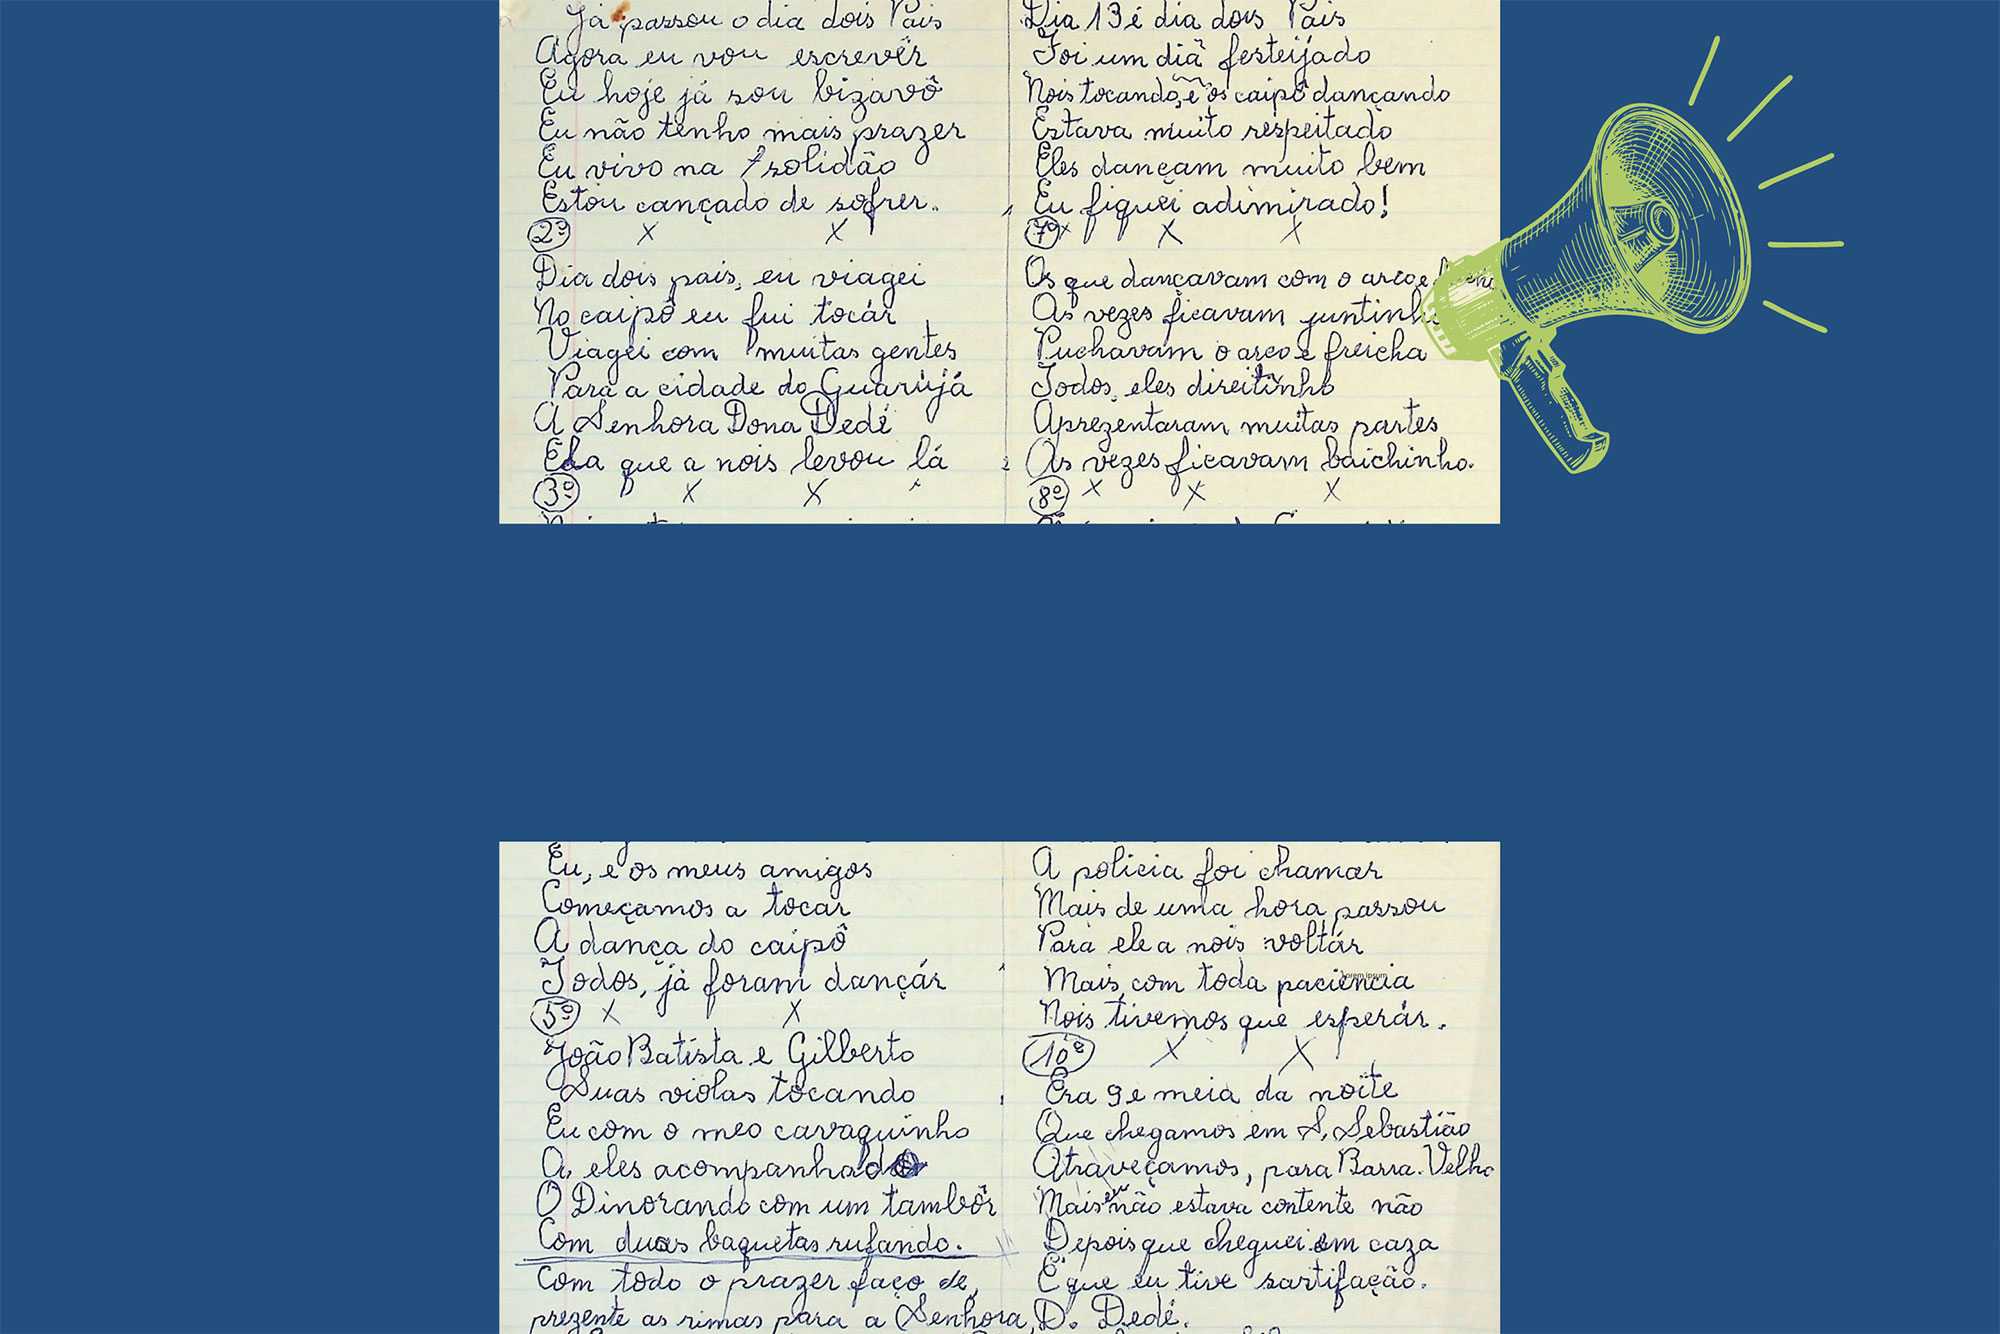 Já passou o dia dois Pais
Agora eu vou escrevêr
Eu hoje já sou bizavô
Eu não tenho mais prazer
Eu vivo na solidão
Estou cançado de sofrer.
2º x x
Dia dois pais, eu viagei
No caipô eu fui tocár
Viagei com muitas gentes
Para a cidade do Guarújá
A Senhora Dona Dedé
Ela que a nois levou lá
3º x x x
Dia 13 é dia dois Pais
Foi um dia festeijado
Nois tocando, e os caipô dançando
Estava muito respeitado
Eles dançam muito bem
Eu fiquei adimirado!
7º x x x
Os que dançavam com o arco e
As vezes ficavam juntinho
Puchavam o arco e freicha
Todos, eles direitinho
Aprezentaram muitas partes
As vezes ficavam baichinho.
8º x x x
Eu, e os meus amigos
Começamos a tocar
A dança do caipô
Todos, já foram dançár
5º x x
João Batista e Gilberto
Suas violas tocando
Eu com o meo cavaquinho
A, eles acompanhado
O Dinorando com um tambôr
Com duas baquetas rufando.
A policia foi chamar
Mais de uma hora passou
Para ele a nois voltár
Lorem ipsum
Mais com toda paciência
Nois tivemos que esperár.
10º x x
Era 9 e meia da noite
Que chegamos em S. Sebastião
Atraveçamos, para Barra Velha
Mais eu não estava contente não
Depois que cheguei em caza
E que eu tive sartifação.
Com todo o prazer faço de,
prezente as rimas para a Senhora, D. Dedé.